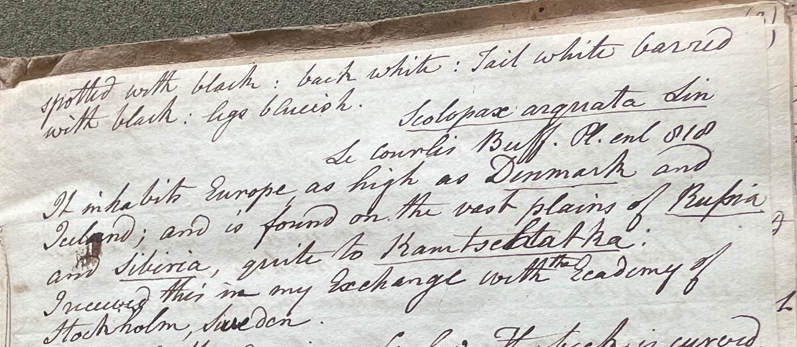 spotted with black: back white: Tail white barred
with black: legs blueish.
Scolopax arquata Lin
Le courlis Buff. Pl. enl 818
It inhabits Europe as high as Denmark and
Iceland; and is found on the vast plains of Russia
and Siberia, quite to Kamtschatka.
I received this in my Exchange with the Academy of
Stockholm, Sweden.
is curved